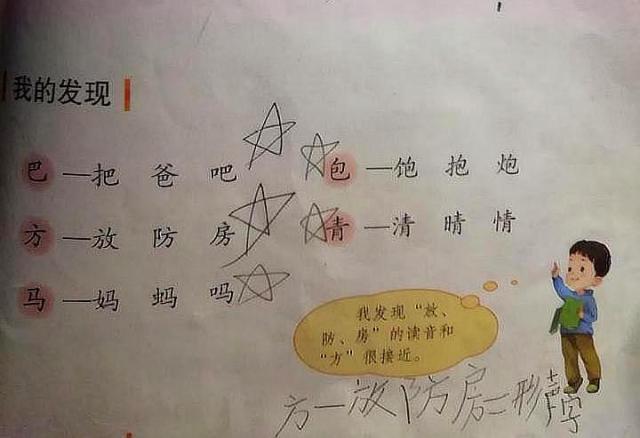 我的发现
巴 — 把 爸 吧 包 — 饱 抱 炮
方 — 放 防 房 青 — 清 晴 情
马 — 妈 蚂 吗
我发现“放、
防、房”的读音和
“方”很接近。
方一放防房二形声字